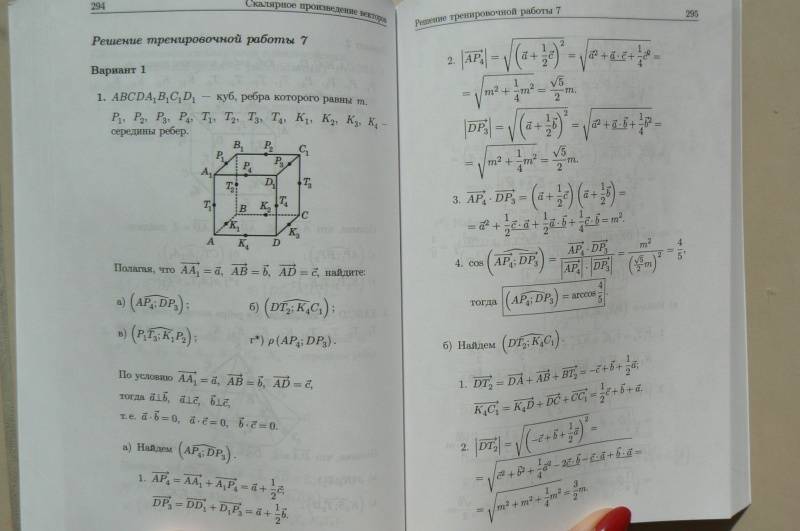 294 Скалярное произведение векторов
Решение тренировочной работы 7
Вариант 1
1. ABCDA₁B₁C₁D₁ — куб, ребра которого равны m.
P₁, P₂, P₃, P₄, T₁, T₂, T₃, T₄, K₁, K₂, K₃, K₄ –
середины ребер.
B₁ P₂ C₁
P₁ P₃
A₁ P₄ D₁
T₂ T₃
T₁ T₄
B K₂ C
K₁ K₃
A K₄ D
Полагая, что \(\overrightarrow{AA_1} = \vec{a}\), \(\overrightarrow{AB} = \vec{b}\), \(\overrightarrow{AD} = \vec{c}\), найдите:
а) \((\widehat{AP_4; DP_3})\); б) \((\widehat{DT_2; K_4C_1})\);
в) \((\widehat{P_1T_3; K_1P_2})\); г*) \(\rho(AP_4; DP_3)\).
По условию \(\overrightarrow{AA_1} = \vec{a}\), \(\overrightarrow{AB} = \vec{b}\), \(\overrightarrow{AD} = \vec{c}\),
тогда \(\vec{a} \perp \vec{b}\), \(\vec{a} \perp \vec{c}\), \(\vec{b} \perp \vec{c}\),
т.е. \(\vec{a} \cdot \vec{b} = 0\), \(\vec{a} \cdot \vec{c} = 0\), \(\vec{b} \cdot \vec{c} = 0\).
а) Найдем \((\widehat{AP_4; DP_3})\).
1. \(\overrightarrow{AP_4} = \overrightarrow{AA_1} + \overrightarrow{A_1P_4} = \vec{a} + \frac{1}{2}\vec{c}\);
\(\overrightarrow{DP_3} = \overrightarrow{DD_1} + \overrightarrow{D_1P_3} = \vec{a} + \frac{1}{2}\vec{b}\).
Решение тренировочной работы 7 295
2. \(|\overrightarrow{AP_4}| = \sqrt{\left(\vec{a} + \frac{1}{2}\vec{c}\right)^2} = \sqrt{\vec{a}^2 + \underline{\vec{a} \cdot \vec{c}} + \frac{1}{4}\vec{c}^2} =\)
\(= \sqrt{m^2 + \frac{1}{4}m^2} = \frac{\sqrt{5}}{2}m.\)
\(|\overrightarrow{DP_3}| = \sqrt{\left(\vec{a} + \frac{1}{2}\vec{b}\right)^2} = \sqrt{\vec{a}^2 + \underline{\vec{a} \cdot \vec{b}} + \frac{1}{4}\vec{b}^2} =\)
\(= \sqrt{m^2 + \frac{1}{4}m^2} = \frac{\sqrt{5}}{2}m.\)
3. \(\overrightarrow{AP_4} \cdot \overrightarrow{DP_3} = \left(\vec{a} + \frac{1}{2}\vec{c}\right)\left(\vec{a} + \frac{1}{2}\vec{b}\right) =\)
\(= \vec{a}^2 + \frac{1}{2}\vec{c} \cdot \vec{a} + \frac{1}{2}\vec{a} \cdot \vec{b} + \frac{1}{4}\vec{c} \cdot \vec{b} = m^2.\)
4. \(\cos\left(\widehat{\overrightarrow{AP_4}; \overrightarrow{DP_3}}\right) = \frac{\overrightarrow{AP_4} \cdot \overrightarrow{DP_3}}{|\overrightarrow{AP_4}| \cdot |\overrightarrow{DP_3}|} = \frac{m^2}{\left(\frac{\sqrt{5}}{2}m\right)^2} = \frac{4}{5},\)
тогда \((\widehat{AP_4; DP_3}) = \arccos\frac{4}{5}\).
б) Найдем \((\widehat{DT_2; K_4C_1})\).
1. \(\overrightarrow{DT_2} = \overrightarrow{DA} + \overrightarrow{AB} + \overrightarrow{BT_2} = -\vec{c} + \vec{b} + \frac{1}{2}\vec{a}\);
\(\overrightarrow{K_4C_1} = \overrightarrow{K_4D} + \overrightarrow{DC} + \overrightarrow{CC_1} = \frac{1}{2}\vec{c} + \vec{b} + \vec{a}.\)
2. \(|\overrightarrow{DT_2}| = \sqrt{\left(-\vec{c} + \vec{b} + \frac{1}{2}\vec{a}\right)^2} =\)
\(= \sqrt{\vec{c}^2 + \vec{b}^2 + \frac{1}{4}\vec{a}^2 - \underline{2\vec{c} \cdot \vec{b}} - \underline{\vec{c} \cdot \vec{a}} + \underline{\vec{b} \cdot \vec{a}}} =\)
\(= \sqrt{m^2 + m^2 + \frac{1}{4}m^2} = \frac{3}{2}m.\)